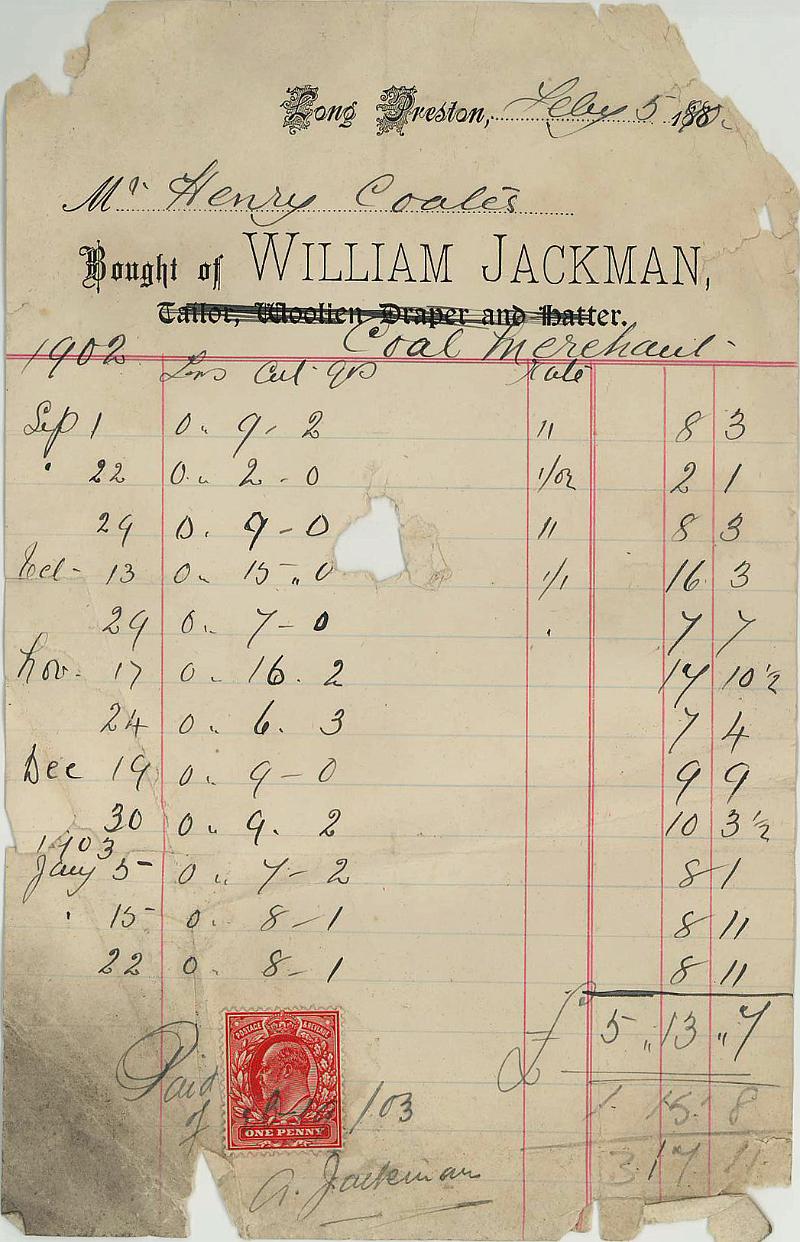 Long Preston, Feby 5 188
Mr Henry Coates
Bought of WILLIAM JACKMAN,
Tailor, Woollen Draper and Hatter.
Coal Merchant
1902 Tons Cwt qrs Rate
Sep 1 0 " 9 - 2 " 8 3
" 22 0 " 2 - 0 1/0½ 2 1
29 0 . 9 - 0 " 8 3
Oct - 13 0 " 15 " 0 1/1 16 3
29 0 " 7 - 0 . 7 7
Nov - 17 0 " 16 . 2 17 10½
24 0 " 6 . 3 7 4
Dec 19 0 " 9 - 0 9 9
30 0 " 9 . 2 10 3½
1903
Jany 5 0 " 7 - 2 8 1
" 15 0 " 8 - 1 8 11
22 0 . 8 - 1 8 11
£ 5 " 13 " 7
1 15 8
3 17 11
Paid
POSTAGE & REVENUE
ONE PENNY
/03
A. Jackman